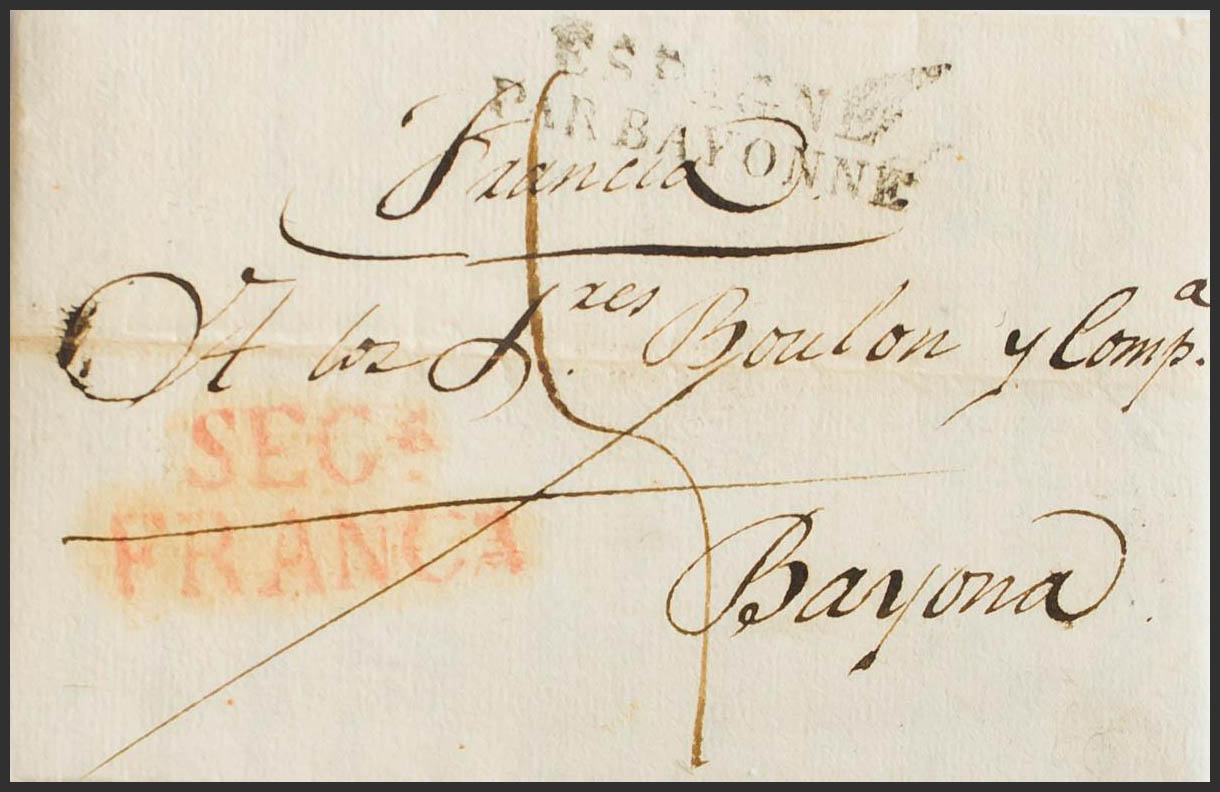 ESPAGNE
PAR BAYONNE
Francia
A los S.res Boulon y Comp.a
SEG.a
FRANCA
Bayona.